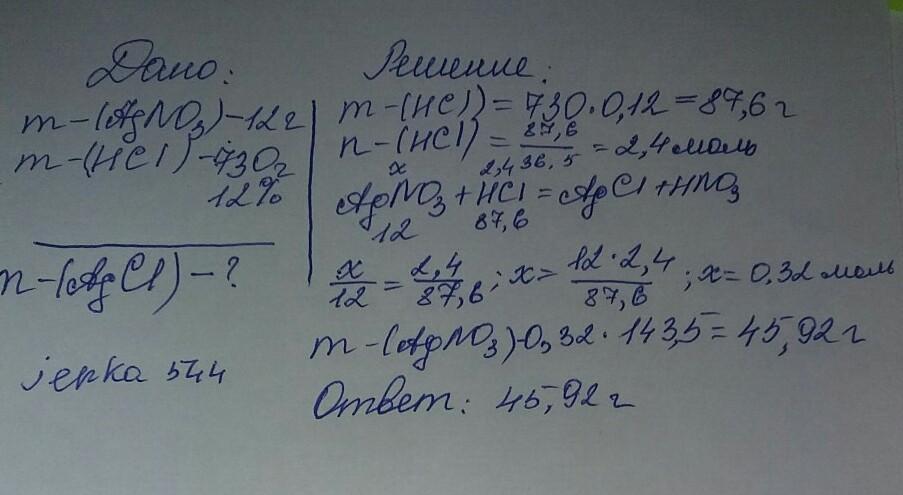 Дано:
m-(AgNO3)-12г
m-(HCl)-730г
12%
n-(AgCl)-?
jerka 544
Решение:
m-(HCl)=730·0,12=87,6г
n-(HCl)=87,6/36,5=2,4моль
x 2,4
AgNO3+HCl=AgCl+HNO3
12 87,6
x/12=2,4/87,6; x=12·2,4/87,6; x=0,32моль
m-(AgNO3)-0,32·143,5=45,92г
Ответ: 45,92г